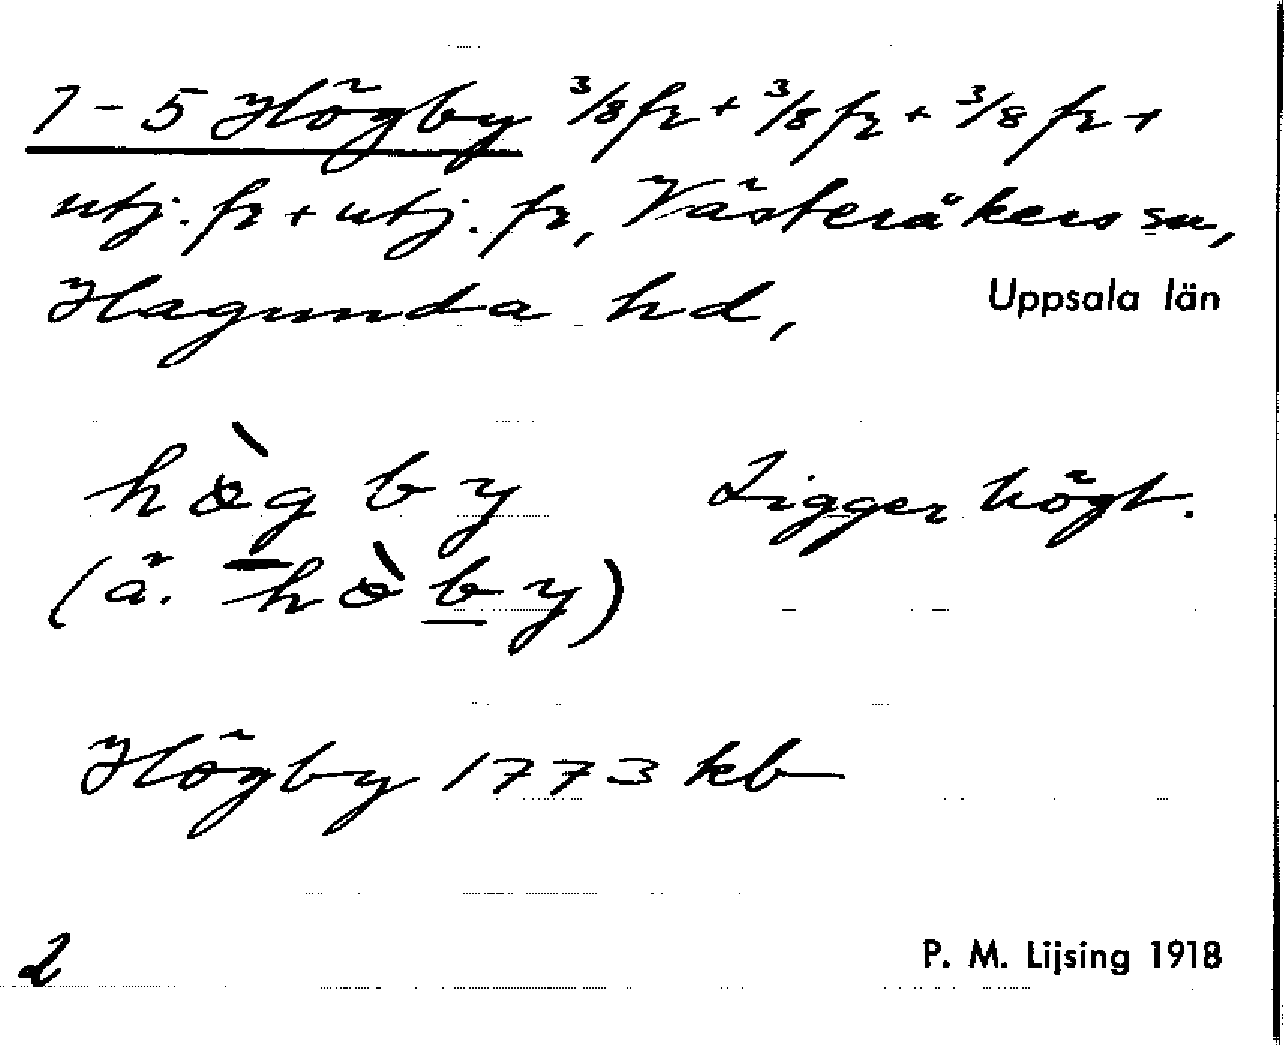 1-5 Högby 3/8 fr + 3/8 fr + 3/8 fr +
utj. fr + utj. fr, Västeråkers sn,
Hagunda hd, Uppsala län
hø̀gby Ligger högt.
(ä. hø̀by)
Högby 1773 kb
2
P. M. Lijsing 1918